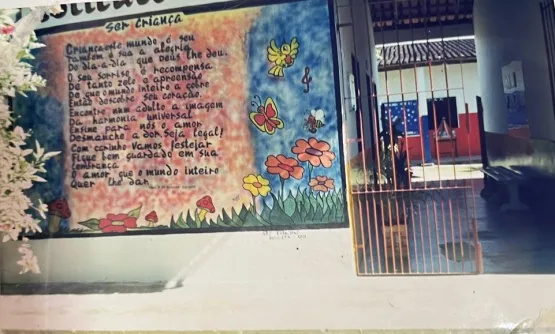 Ser criança
Criança este mundo é seu
Também é sua a alegria
De dia a dia que Deus lhe deu.
O seu sorriso é recompensa
De tanto zelo e apreensão
De que o mundo inteiro a cobre
Então descobre seu coração.
Encontre num adulto a imagem
Da harmonia universal
Ensine para nós o amor
Desmanche a dor. Seja legal!
Com carinho vamos festejar
Fique bem guardado em sua
O amor que o mundo inteiro
Quer lhe dar.